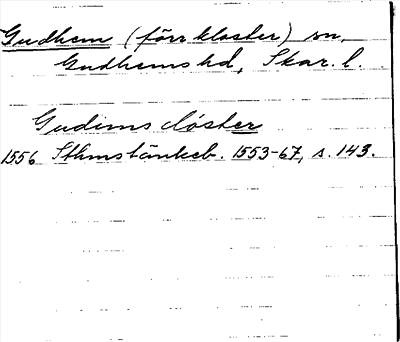 Gudhem (förr kloster) sn,
Gudhems hd, Skar. l.
Gudims clöster
1556 Sthmstänkeb. 1553-67, s. 143.